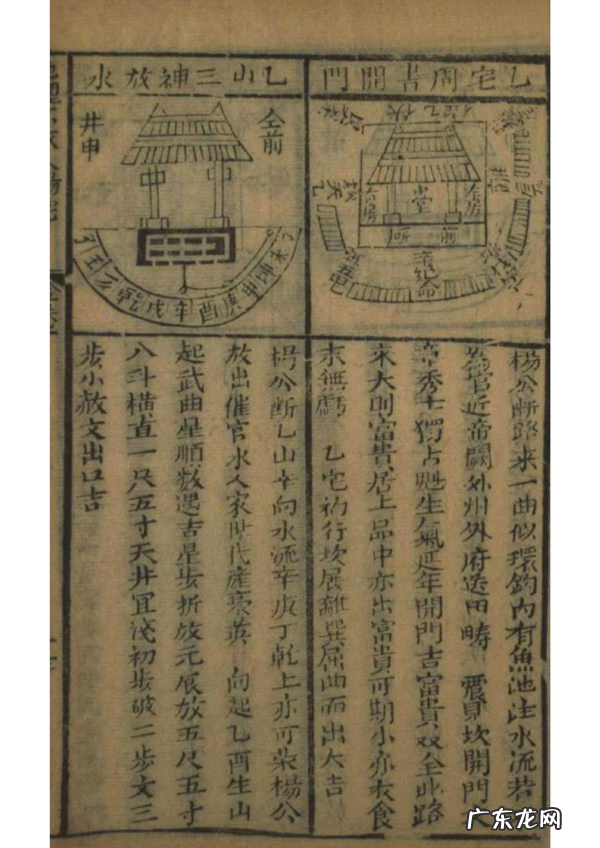 乙宅周書開門
堂
前
絶命
楊公斷路来一曲似環鈎内有魚池注水流若
為官近帝闕外州外府送田疇 震巽坎開門大
章秀士獨占魁生氣延年開門吉富貴双全此路
来大則富貴居上品中亦出富貴可期小亦衣食
求無虧 乙宅初行坎展離巽屈曲而出大吉
乙山三神放水
仝前
井申
中
中
丁未坤申庚酉辛戌乾亥壬
楊公斷乙山辛向水流辛庚丁乾上亦可栄楊公
放出催官水人家世代産豪英 向起乙酉生山
起武曲星順数遇吉星步折放元辰放五尺五寸
八斗橫直一尺五寸天井冝淺初步破二步文三
步小赦文出口吉
广东龙网